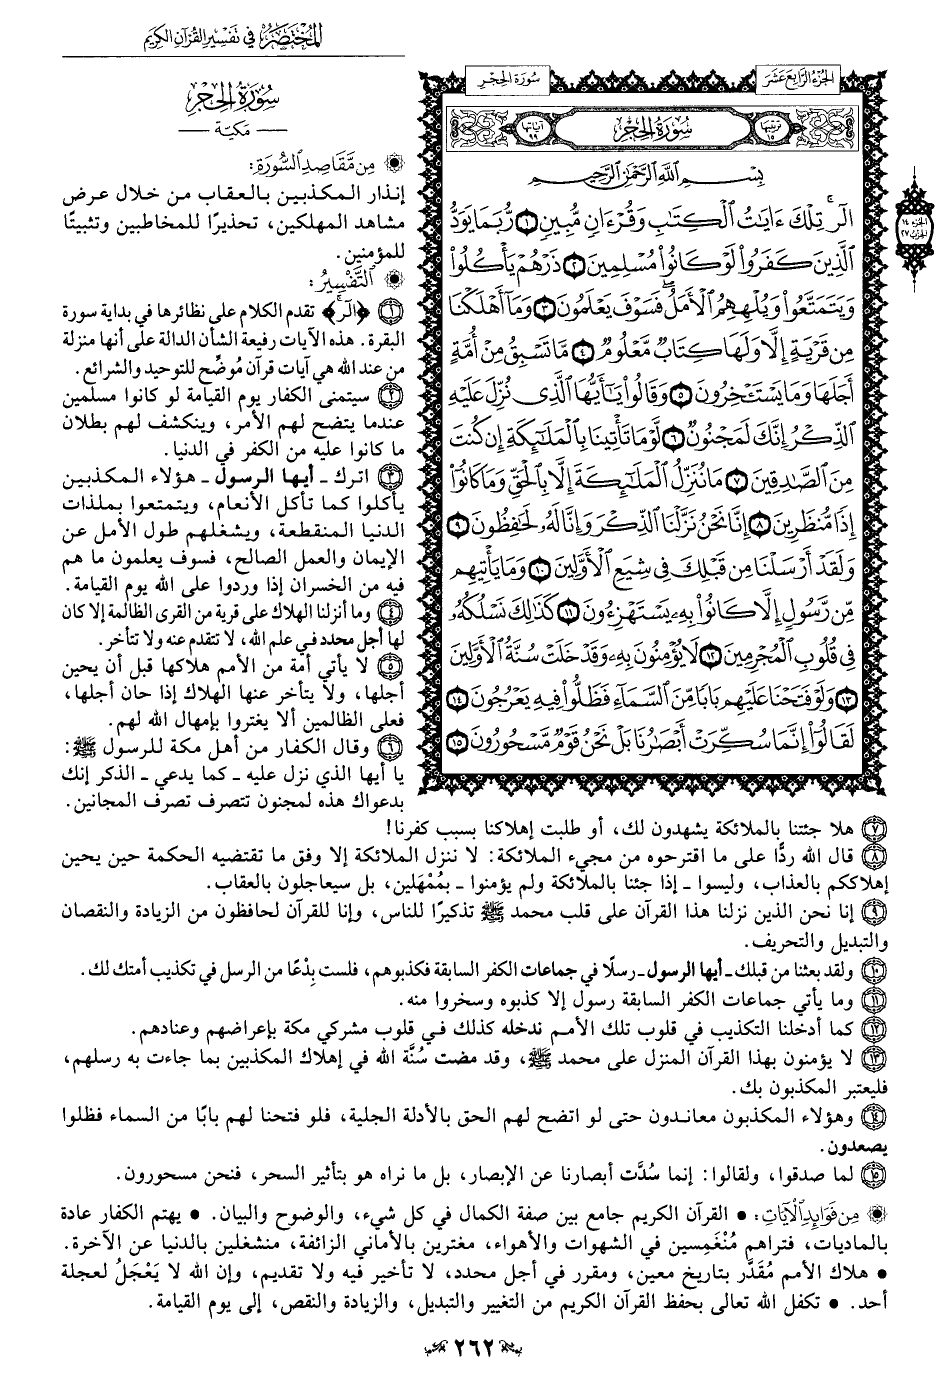 المُخْتَصَرُ في تَفسِيرِ القُرْآنِ الكَرِيمِ
الجُزْءُ الرَّابِعَ عَشَرَ
سُورَةُ الحِجْرِ
ترتيبها ١٥
سُورَةُ الحِجْرِ
آياتها ٩٩
بِسْمِ اللَّهِ الرَّحْمَٰنِ الرَّحِيمِ
الٓرۚ تِلْكَ ءَايَٰتُ ٱلْكِتَٰبِ وَقُرْءَانٍ مُّبِينٍ ١ رُّبَمَا يَوَدُّ
ٱلَّذِينَ كَفَرُواْ لَوْ كَانُواْ مُسْلِمِينَ ٢ ذَرْهُمْ يَأْكُلُواْ
وَيَتَمَتَّعُواْ وَيُلْهِهِمُ ٱلْأَمَلُۖ فَسَوْفَ يَعْلَمُونَ ٣ وَمَآ أَهْلَكْنَا
مِن قَرْيَةٍ إِلَّا وَلَهَا كِتَابٌ مَّعْلُومٌ ٤ مَّا تَسْبِقُ مِنْ أُمَّةٍ
أَجَلَهَا وَمَا يَسْتَـْٔخِرُونَ ٥ وَقَالُواْ يَٰٓأَيُّهَا ٱلَّذِي نُزِّلَ عَلَيْهِ
ٱلذِّكْرُ إِنَّكَ لَمَجْنُونٌ ٦ لَّوْ مَا تَأْتِينَا بِٱلْمَلَٰٓئِكَةِ إِن كُنتَ
مِنَ ٱلصَّٰدِقِينَ ٧ مَا نُنَزِّلُ ٱلْمَلَٰٓئِكَةَ إِلَّا بِٱلْحَقِّ وَمَا كَانُوٓاْ
إِذًا مُّنظَرِينَ ٨ إِنَّا نَحْنُ نَزَّلْنَا ٱلذِّكْرَ وَإِنَّا لَهُۥ لَحَٰفِظُونَ ٩
وَلَقَدْ أَرْسَلْنَا مِن قَبْلِكَ فِي شِيَعِ ٱلْأَوَّلِينَ ١٠ وَمَا يَأْتِيهِم
مِّن رَّسُولٍ إِلَّا كَانُواْ بِهِۦ يَسْتَهْزِءُونَ ١١ كَذَٰلِكَ نَسْلُكُهُۥ
فِي قُلُوبِ ٱلْمُجْرِمِينَ ١٢ لَا يُؤْمِنُونَ بِهِۦ وَقَدْ خَلَتْ سُنَّةُ ٱلْأَوَّلِينَ
١٣ وَلَوْ فَتَحْنَا عَلَيْهِم بَابًا مِّنَ ٱلسَّمَآءِ فَظَلُّواْ فِيهِ يَعْرُجُونَ ١٤
لَقَالُوٓاْ إِنَّمَا سُكِّرَتْ أَبْصَٰرُنَا بَلْ نَحْنُ قَوْمٌ مَّسْحُورُونَ ١٥
الجزء ١٤
الحزب ٢٧
سُورَةُ الحِجْرِ
— مَكيّة —
مِن مَّقَاصِدِ السُّورَةِ:
إنذار المكذبين بالعقاب من خلال عرض
مشاهد المهلكين، تحذيرًا للمخاطبين وتثبيتًا
للمؤمنين.
التَّفْسِيرُ:
١ ﴿الٓرۚ﴾ تقدم الكلام على نظائرها في بداية سورة
البقرة. هذه الآيات رفيعة الشأن الدالة على أنها منزلة
من عند الله هي آيات قرآن مُوضِّح للتوحيد والشرائع.
٢ سيتمنى الكفار يوم القيامة لو كانوا مسلمين
عندما يتضح لهم الأمر، وينكشف لهم بطلان
ما كانوا عليه من الكفر في الدنيا.
٣ اترك ـ أيها الرسول ـ هؤلاء المكذبين
يأكلوا كما تأكل الأنعام، ويتمتعوا بملذات
الدنيا المنقطعة، ويشغلهم طول الأمل عن
الإيمان والعمل الصالح، فسوف يعلمون ما هم
فيه من الخسران إذا وردوا على الله يوم القيامة.
٤ وما أنزلنا الهلاك على قرية من القرى الظالمة إلا كان
لها أجل محدد في علم الله، لا تتقدم عنه ولا تتأخر.
٥ لا يأتي أمة من الأمم هلاكها قبل أن يحين
أجلها، ولا يتأخر عنها الهلاك إذا حان أجلها،
فعلى الظالمين ألا يغتروا بإمهال الله لهم.
٦ وقال الكفار من أهل مكة للرسول ﷺ:
يا أيها الذي نزل عليه ـ كما يدعي ـ الذكر إنك
بدعواك هذه لمجنون تتصرف تصرف المجانين.
٧ هلا جئتنا بالملائكة يشهدون لك، أو طلبت إهلاكنا بسبب كفرنا!
٨ قال الله ردًّا على ما اقترحوه من مجيء الملائكة: لا ننزل الملائكة إلا وفق ما تقتضيه الحكمة حين يحين
إهلاككم بالعذاب، وليسوا ـ إذا جئنا بالملائكة ولم يؤمنوا ـ بمُمْهَلين، بل سيعاجلون بالعقاب.
٩ إنا نحن الذين نزلنا هذا القرآن على قلب محمد ﷺ تذكيرًا للناس، وإنا للقرآن لحافظون من الزيادة والنقصان
والتبديل والتحريف.
١٠ ولقد بعثنا من قبلك ـ أيها الرسول ـ رسلًا في جماعات الكفر السابقة فكذبوهم، فلست بِدْعًا من الرسل في تكذيب أمتك لك.
١١ وما يأتي جماعات الكفر السابقة رسول إلا كذبوه وسخروا منه.
١٢ كما أدخلنا التكذيب في قلوب تلك الأمم ندخله كذلك في قلوب مشركي مكة بإعراضهم وعنادهم.
١٣ لا يؤمنون بهذا القرآن المنزل على محمد ﷺ، وقد مضت سُنَّة الله في إهلاك المكذبين بما جاءت به رسلهم،
فليعتبر المكذبون بك.
١٤ وهؤلاء المكذبون معاندون حتى لو اتضح لهم الحق بالأدلة الجلية، فلو فتحنا لهم بابًا من السماء فظلوا
يصعدون.
١٥ لما صدقوا، ولقالوا: إنما سُدَّت أبصارنا عن الإبصار، بل ما نراه هو بتأثير السحر، فنحن مسحورون.
مِن فَوَائِدِ الآيَاتِ: • القرآن الكريم جامع بين صفة الكمال في كل شيء، والوضوح والبيان. • يهتم الكفار عادة
بالماديات، فتراهم مُنْغَمِسين في الشهوات والأهواء، مغترين بالأماني الزائفة، منشغلين بالدنيا عن الآخرة.
• هلاك الأمم مُقَدَّر بتاريخ معين، ومقرر في أجل محدد، لا تأخير فيه ولا تقديم، وإن الله لا يَعْجَلُ لعجلة
أحد. • تكفل الله تعالى بحفظ القرآن الكريم من التغيير والتبديل، والزيادة والنقص، إلى يوم القيامة.
٢٦٢